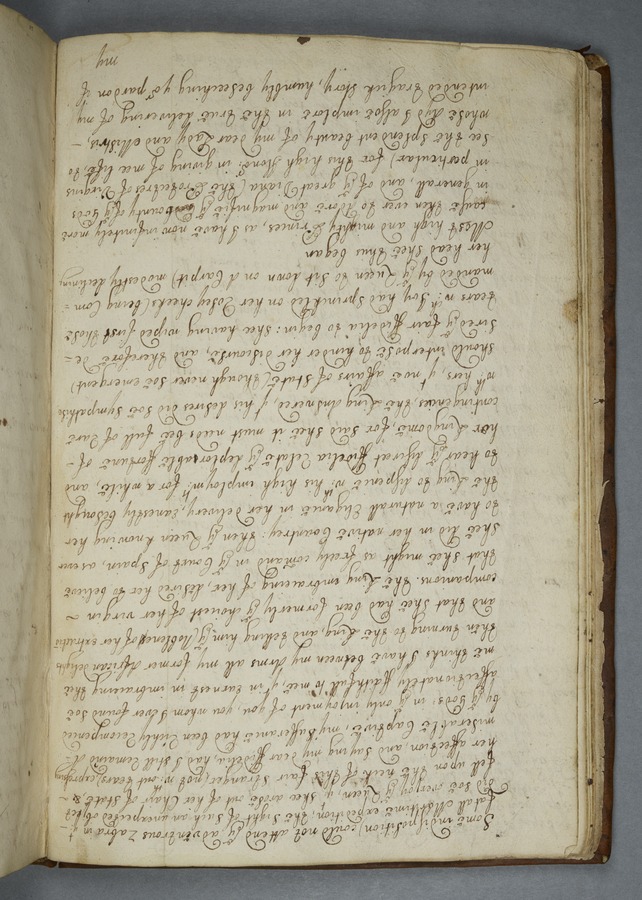 Some indisposition) could not attend ye adventrous Zabra in yt
fatall Maritime expedition; the sight of such an unexpected object
did soe overjoy ye Queen, yt shee arose out of her Chair of state, &
fell upon the neck of the fair stranger; not wth out tears) expressing
her affection and saying my dear Fidelia, had I still remaind A
miserable Captive, my sufferance had been richly recompenced
by ye Gods: in ye only injoyment of you, you whom I ever found soe
affectionately faithfull to mee, yt in earnest in imbraceing thee
mee thinks I have between my Arms all my former African delights
then turning to the King and telling him ye Nobleness of her extraction
and that shee had been formerly ye choicest of her virgin ~
companions. the King embraceing of her, desired her to believe
that shee might as freely comand in ye Court of Spain, as ever
shee did in her native Country: then ye Queen knowing her
to have a naturall Eligance in her delivery, earnestly besought
the King to dispence wth his high imploymts for a while, and
to hear ye discreet Fidelia relate ye deplorable Fortune of –
her Kingdome for said shee it must needs bee full of rare
contingencies, the King Answered, yt his desires did soe sympathise
wth hers, yt noe affairs of state (though never soe emergent)
should interpose to hinder her discourse, and therefore de=
sired ye fair Fidelia to begin: shee having first wiped those
tears wch Joy had sprinkled on her Rosey cheeks (being Com=
manded by ye Queen to sit down on A Carpit) modestly declining
her head shee thus began
Most high and mighty Princes, as I have now infinitely more
cause then ever to Adore and magnifie ye bounty of ye Gods
in generall, and of ye great Diana (the Protectres of Virgins
in perticuler) for this high Honor: in giving of mee life, to
see the splendent beauty of my dear Lady and Mistris, –
whose Ayd I allsoe implore in the true delivering of my
intended Tragick story, humbly beseeching yor pardon if
my